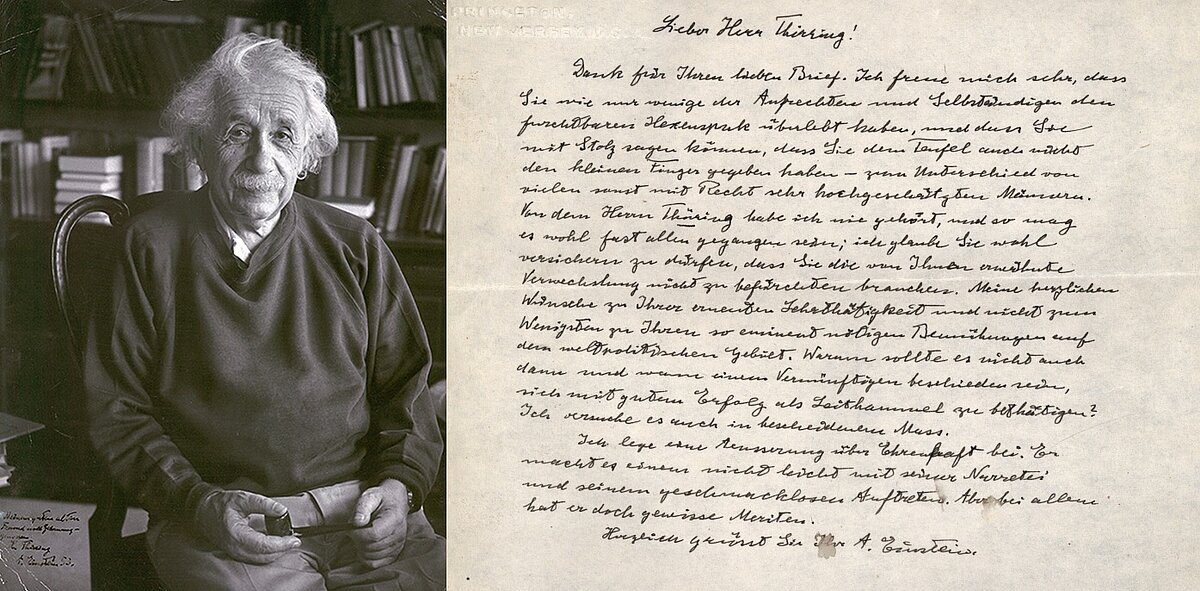 PRINCETON.
NEW JERSEY, U.S.A.
Lieber Herr Thirring!
Dank für Ihren lieben Brief. Ich freue mich sehr, dass
Sie wie nur wenige der Aufrechten und Selbständigen den
furchtbaren Hexenspuk überlebt haben, und dass Sie
mit Stolz sagen können, dass Sie dem Teufel auch nicht
den kleinen Finger gegeben haben – zum Unterschied von
vielen sonst mit Recht sehr hochgeschätzten Männern.
Von dem Herrn Thüring habe ich nie gehört, und so mag
es wohl fast allen gegangen sein; ich glaube Sie wohl
versichern zu dürfen, dass Sie die von Ihnen erwähnte
Verwechslung nicht zu befürchten brauchen. Meine herzlichen
Wünsche zu Ihrer erneuten Lehrthätigkeit und nicht zum
Wenigsten zu Ihren so eminent nötigen Bemühungen auf
dem weltpolitischen Gebiet. Warum sollte es nicht auch
dann und wann einem Vernünftigen beschieden sein,
sich mit gutem Erfolg als Leithammel zu bethätigen?
Ich versuche es auch in bescheidenem Mass.
Ich lege eine Aeusserung über Ehrenhaft bei. Er
macht es einem nicht leicht mit seiner Narretei
und seinem geschmacklosen Auftreten. Aber bei allem
hat er doch gewisse Meriten.
Herzlich grüsst Sie Ihr A. Einstein.
Meinem
Freund und
Thirring
A. Einstein 53.